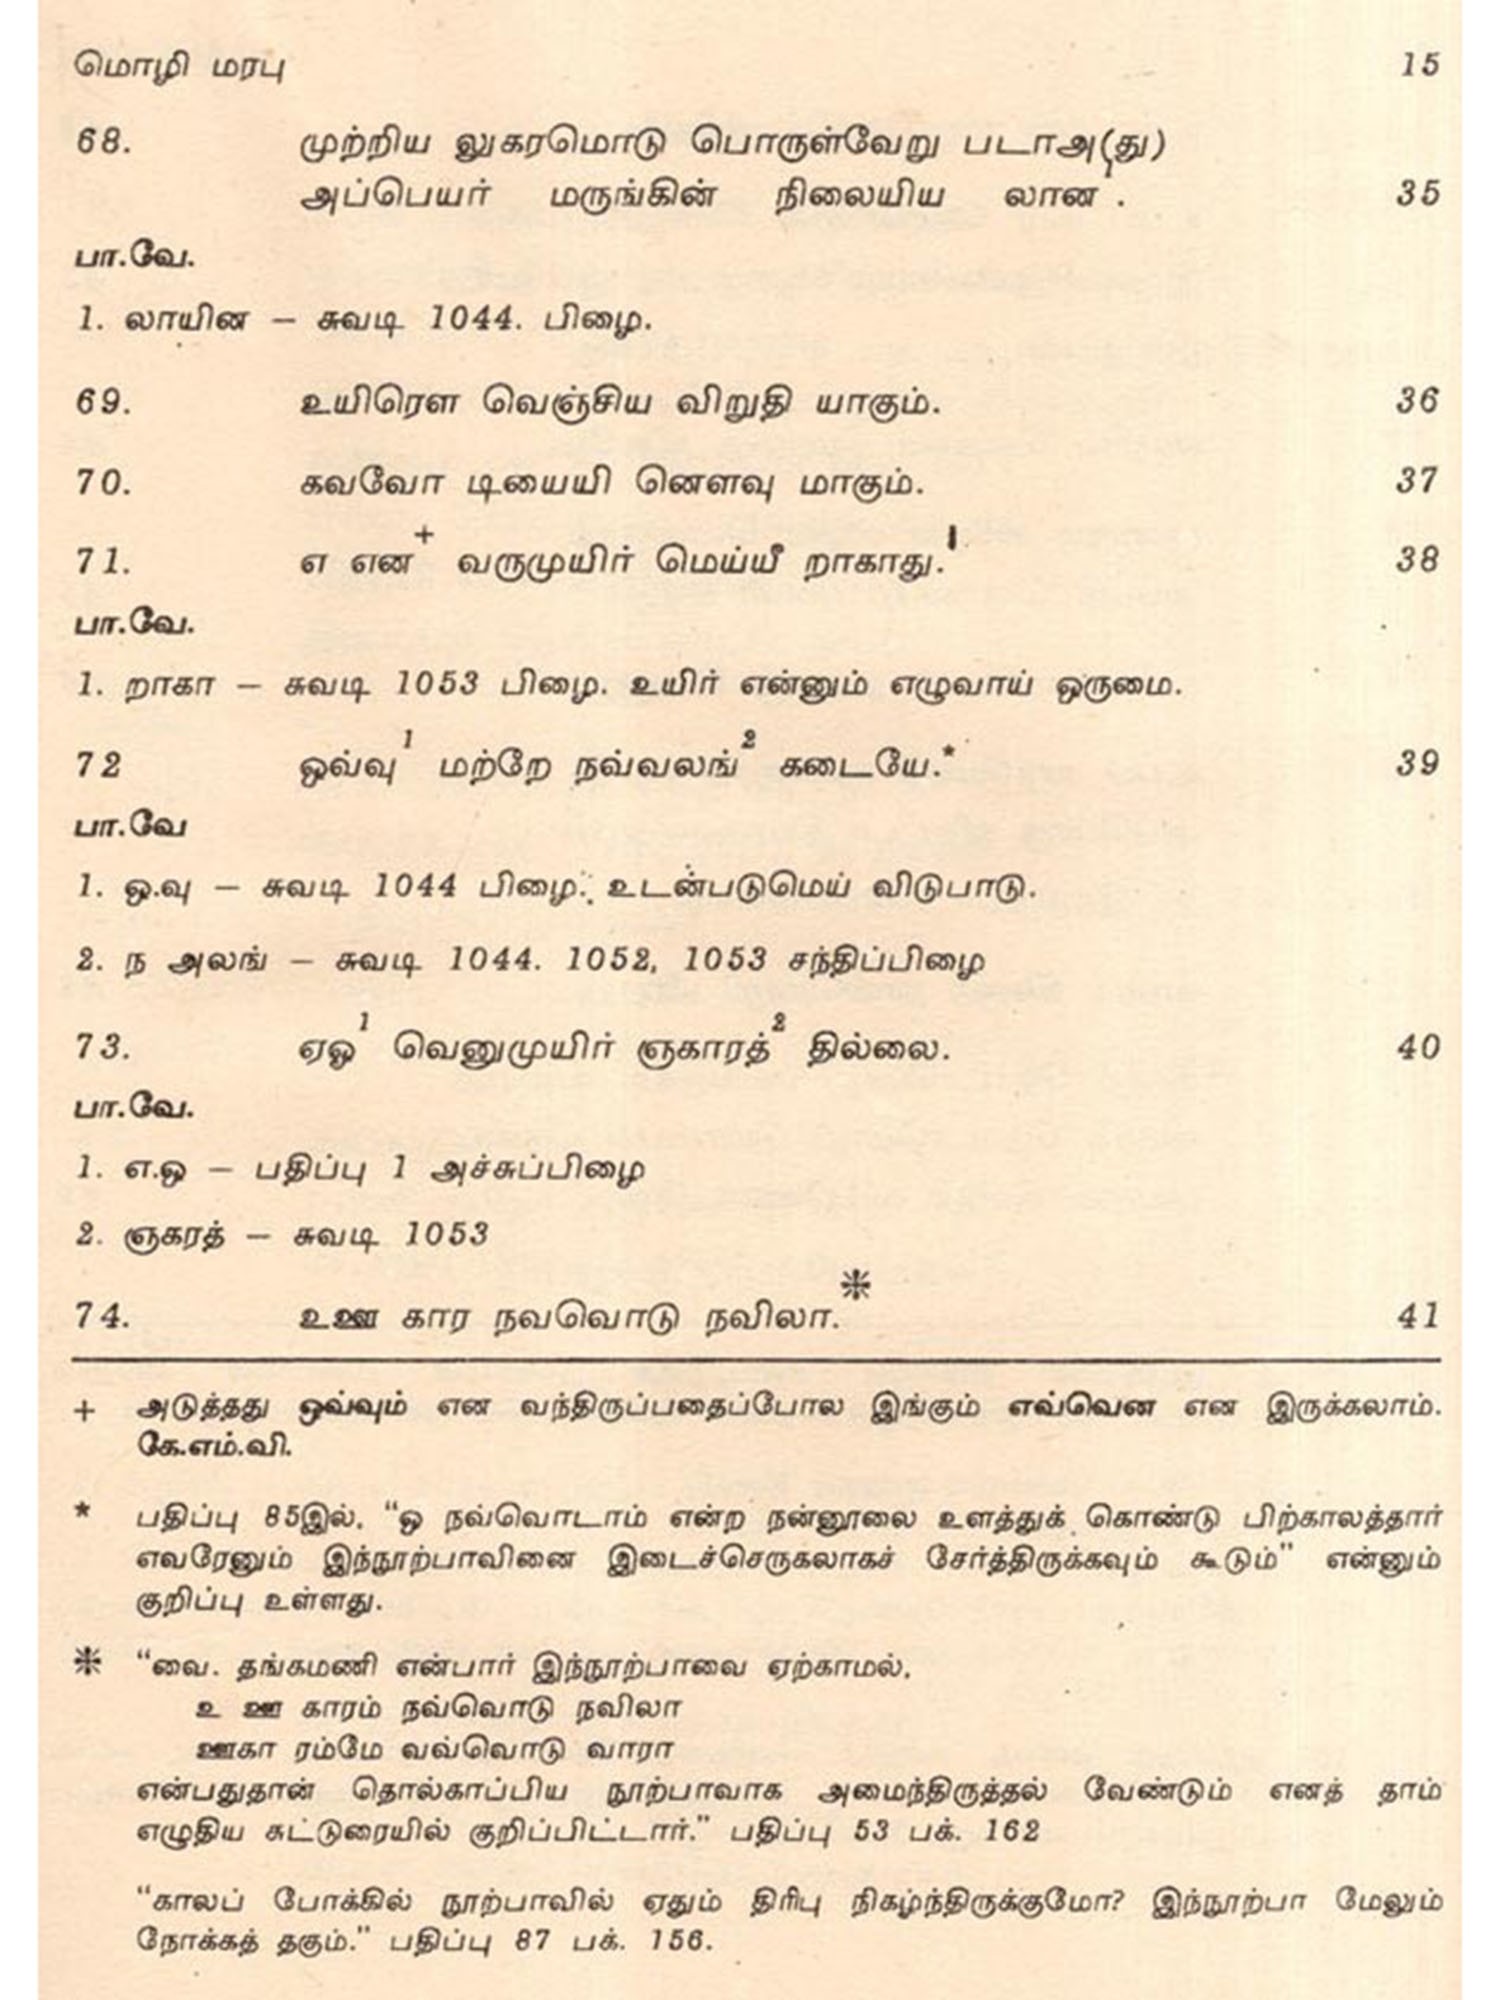 மொழி மரபு 15
68. முற்றிய லுகரமொடு பொருள்வேறு படாஅ(து)
அப்பெயர் மருங்கின் நிலையிய லான¹. 35
பா.வே.
1. லாயின – சுவடி 1044. பிழை.
69. உயிரௌ வெஞ்சிய விறுதி யாகும். 36
70. கவவோ டியையி னௌவு மாகும். 37
71. எ என⁺ வருமுயிர் மெய்யீ றாகாது.¹ 38
பா.வே.
1. றாகா – சுவடி 1053 பிழை. உயிர் என்னும் எழுவாய் ஒருமை.
72 ஒவ்வு¹ மற்றே நவ்வலங்² கடையே.* 39
பா.வே
1. ஒ.வு – சுவடி 1044 பிழை. உடன்படுமெய் விடுபாடு.
2. ந அலங் – சுவடி 1044. 1052, 1053 சந்திப்பிழை
73. ஏஒ¹ வெனுமுயிர் ஞகாரத்² தில்லை. 40
பா.வே.
1. எ.ஒ – பதிப்பு 1 அச்சுப்பிழை
2. ஞகரத் – சுவடி 1053
74. உஊ கார நவவொடு நவிலா.❈ 41
+ அடுத்தது ஒவ்வும் என வந்திருப்பதைப்போல இங்கும் எவ்வென என இருக்கலாம்.
கே.எம்.வி.
* பதிப்பு 85இல், “ஒ நவ்வொடாம் என்ற நன்னூலை உளத்துக் கொண்டு பிற்காலத்தார்
எவரேனும் இந்நூற்பாவினை இடைச்செருகலாகச் சேர்த்திருக்கவும் கூடும்” என்னும்
குறிப்பு உள்ளது.
❈ “வை. தங்கமணி என்பார் இந்நூற்பாவை ஏற்காமல்,
உ ஊ காரம் நவ்வொடு நவிலா
ஊகா ரம்மே வவ்வொடு வாரா
என்பதுதான் தொல்காப்பிய நூற்பாவாக அமைந்திருத்தல் வேண்டும் எனத் தாம்
எழுதிய கட்டுரையில் குறிப்பிட்டார்.” பதிப்பு 53 பக். 162
“காலப் போக்கில் நூற்பாவில் ஏதும் திரிபு நிகழ்ந்திருக்குமோ? இந்நூற்பா மேலும்
நோக்கத் தகும்.” பதிப்பு 87 பக். 156.